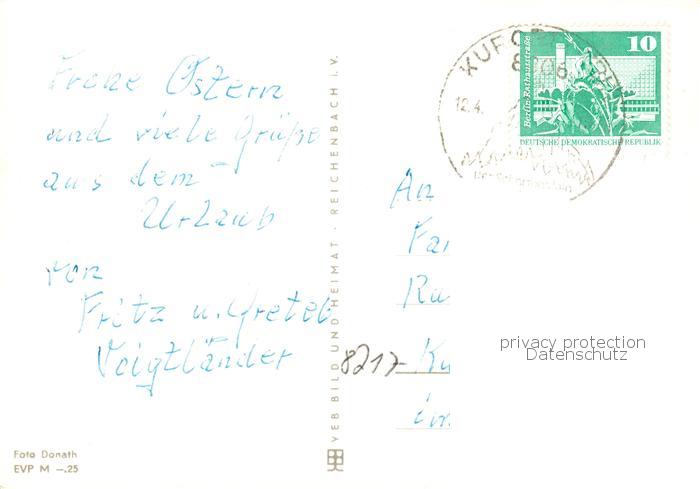 Frohe Ostern
und viele Grüße
aus dem
Urlaub
von
Fritz u. Gretel
Voigtländer
Foto Donath
EVP M –.25
VEB BILD UND HEIMAT · REICHENBACH I. V.
KURORT
12.4.
10
Berlin-Rathausstraße
DEUTSCHE DEMOKRATISCHE REPUBLIK
An
Fa
Ru
8217 Ku
privacy protection
Datenschutz